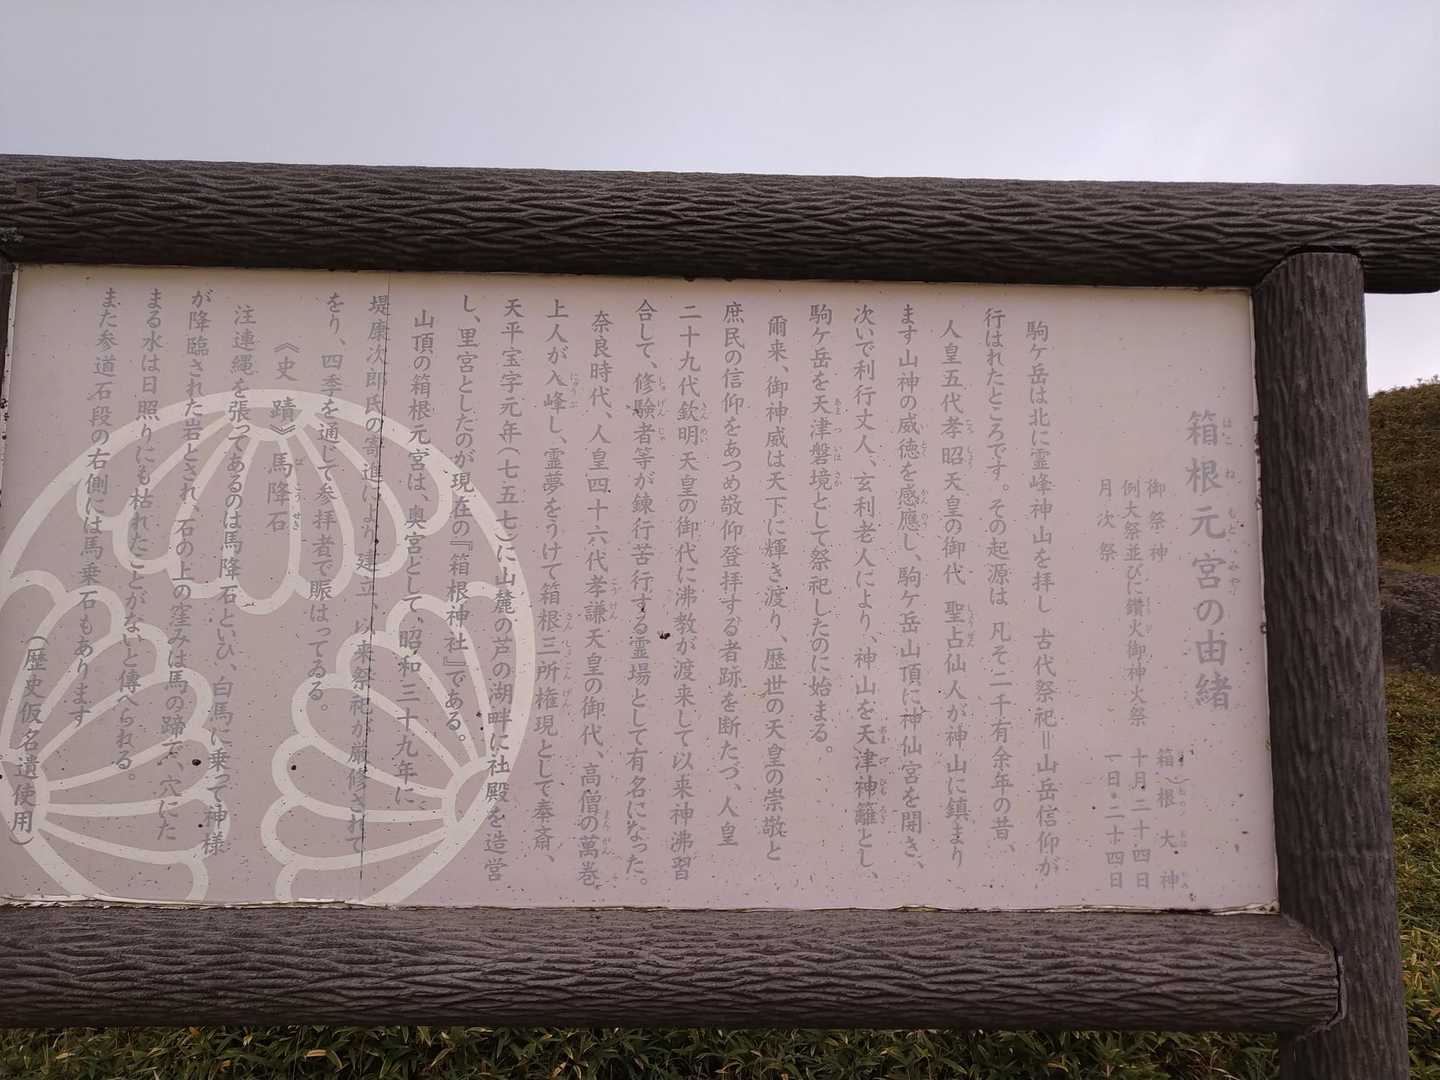 箱根元宮の由緒
御祭神 箱根大神
例大祭並びに鑽火御神火祭 十月二十四日
月次祭 一日・二十四日
駒ケ岳は北に霊峰神山を拝し 古代祭祀＝山岳信仰が
行はれたところです。その起源は 凡そ二千有余年の昔、
人皇五代孝昭天皇の御代 聖占仙人が神山に鎮まり
ます山神の威徳を感應し、駒ケ岳山頂に神仙宮を開き、
次いで利行丈人、玄利老人により、神山を天津神籬とし、
駒ケ岳を天津磐境として祭祀したのに始まる。
爾来、御神威は天下に輝き渡り、歴世の天皇の崇敬と
庶民の信仰をあつめ敬仰登拝する者跡を断たづ、人皇
二十九代欽明天皇の御代に沸教が渡来して以来神沸習
合して、修験者等が錬行苦行する霊場として有名になった。
奈良時代、人皇四十六代孝謙天皇の御代、高僧の萬巻
上人が入峰し、霊夢をうけて箱根三所権現として奉斎、
天平宝字元年(七五七)に山麓の芦の湖畔に社殿を造営
し、里宮としたのが現在の『箱根神社』である。
山頂の箱根元宮は、奥宮として、昭和三十九年に
堤康次郎氏の寄進により 建立、以来祭祀が厳修されて
をり、四季を通じて参拝者で賑はってゐる。
《史 蹟》馬降石
注連縄を張ってあるのは馬降石といひ、白馬に乗って神様
が降臨された岩とされ、石の上の窪みは馬の蹄で、穴にた
まる水は日照りにも枯れたことがないと傳へらゐる。
また参道石段の右側には馬乗石もあります
(歴史仮名遣使用)